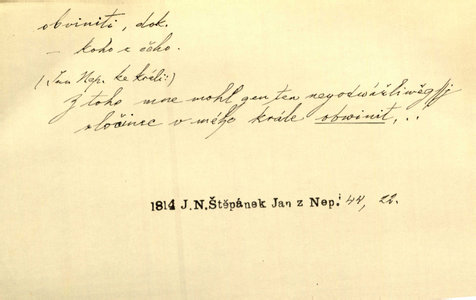 obviniti, dok.
— koho z čeho.
(Jan Nep. ke králi:)
Z toho mne mohl gen ten neyodwážliwěgssj
zločinec v mého krále obwinit,..
1814 J.N.Štěpánek Jan z Nep. 44, 22.